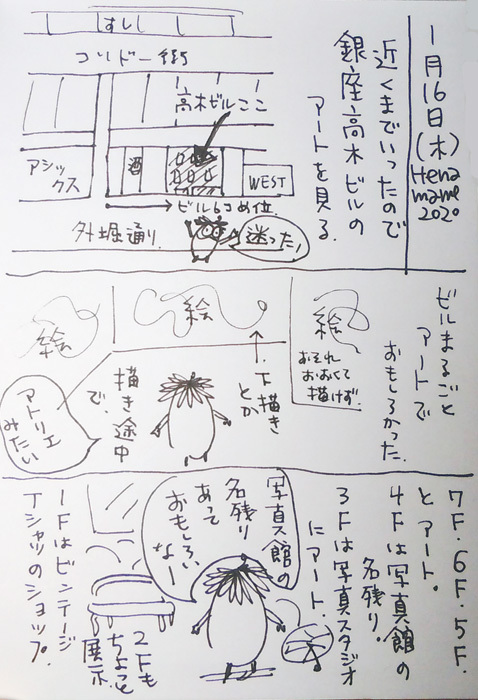 1月16日(木)
Hena
mame
2020
近くまでいったので
銀座高木ビルの
アートを見る。
コリドー街
高木ビルここ
アシッ
クス
酒
WEST
ビル6コめ位
外堀通り
迷った!
ビルまるごと
アートで
おもしろかった。
絵
おそれ
おおくて
描けず。
絵
下描き
とか
描き途中
で、
絵
アトリエ
みたい
7F.6F.5F
とアート。
4Fは写真館の
名残り。
3Fは写真スタジオ
にアート。
写真館の
名残り
あって
おもしろい
なー
2Fも
ちょこっと
展示
1Fはビンテージ
Tシャツのショップ。